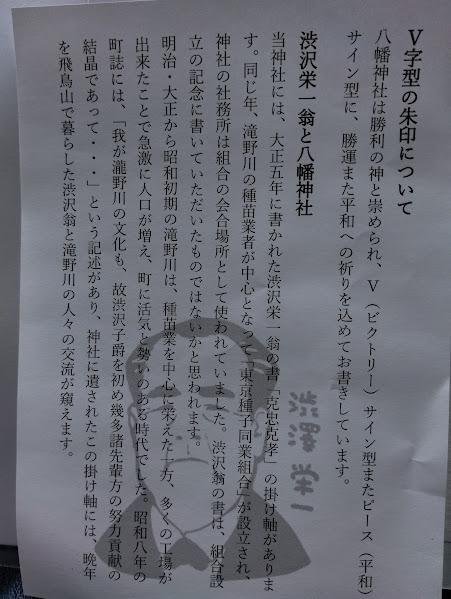 V字型の朱印について
八幡神社は勝利の神と崇められ、V（ビクトリー）サイン型またピース（平和）
サイン型に、勝運また平和への祈りを込めてお書きしています。
渋沢栄一翁と八幡神社
当神社には、大正五年に書かれた渋沢栄一翁の書「克忠克孝」の掛け軸がありま
す。同じ年、滝野川の種苗業者が中心となって「東京種子同業組合」が設立され、
神社の社務所は組合の会合場所として使われていました。渋沢翁の書は、組合設
立の記念に書いていただいたものではないかと思われます。
明治・大正から昭和初期の滝野川は、種苗業を中心に栄えた一方、多くの工場が
出来たことで急激に人口が増え、町に活気と勢いのある時代でした。昭和八年の
町誌には、「我が瀧野川の文化も、故渋沢子爵を初め幾多諸先輩方の努力貢献の
結晶であって・・・」という記述があり、神社に遺されたこの掛け軸には、晩年
を飛鳥山で暮らした渋沢翁と滝野川の人々の交流が窺えます。
渋澤栄一